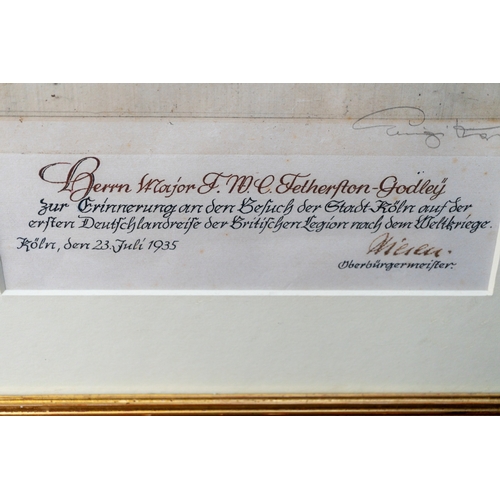 Herrn Major F. W. C. Fetherston-Godley
zur Erinnerung an den Besuch der Stadt Köln auf der
ersten Deutschlandreise der Britischen Legion nach dem Weltkriege.
Köln, den 23. Juli 1935
Oberbürgermeister.